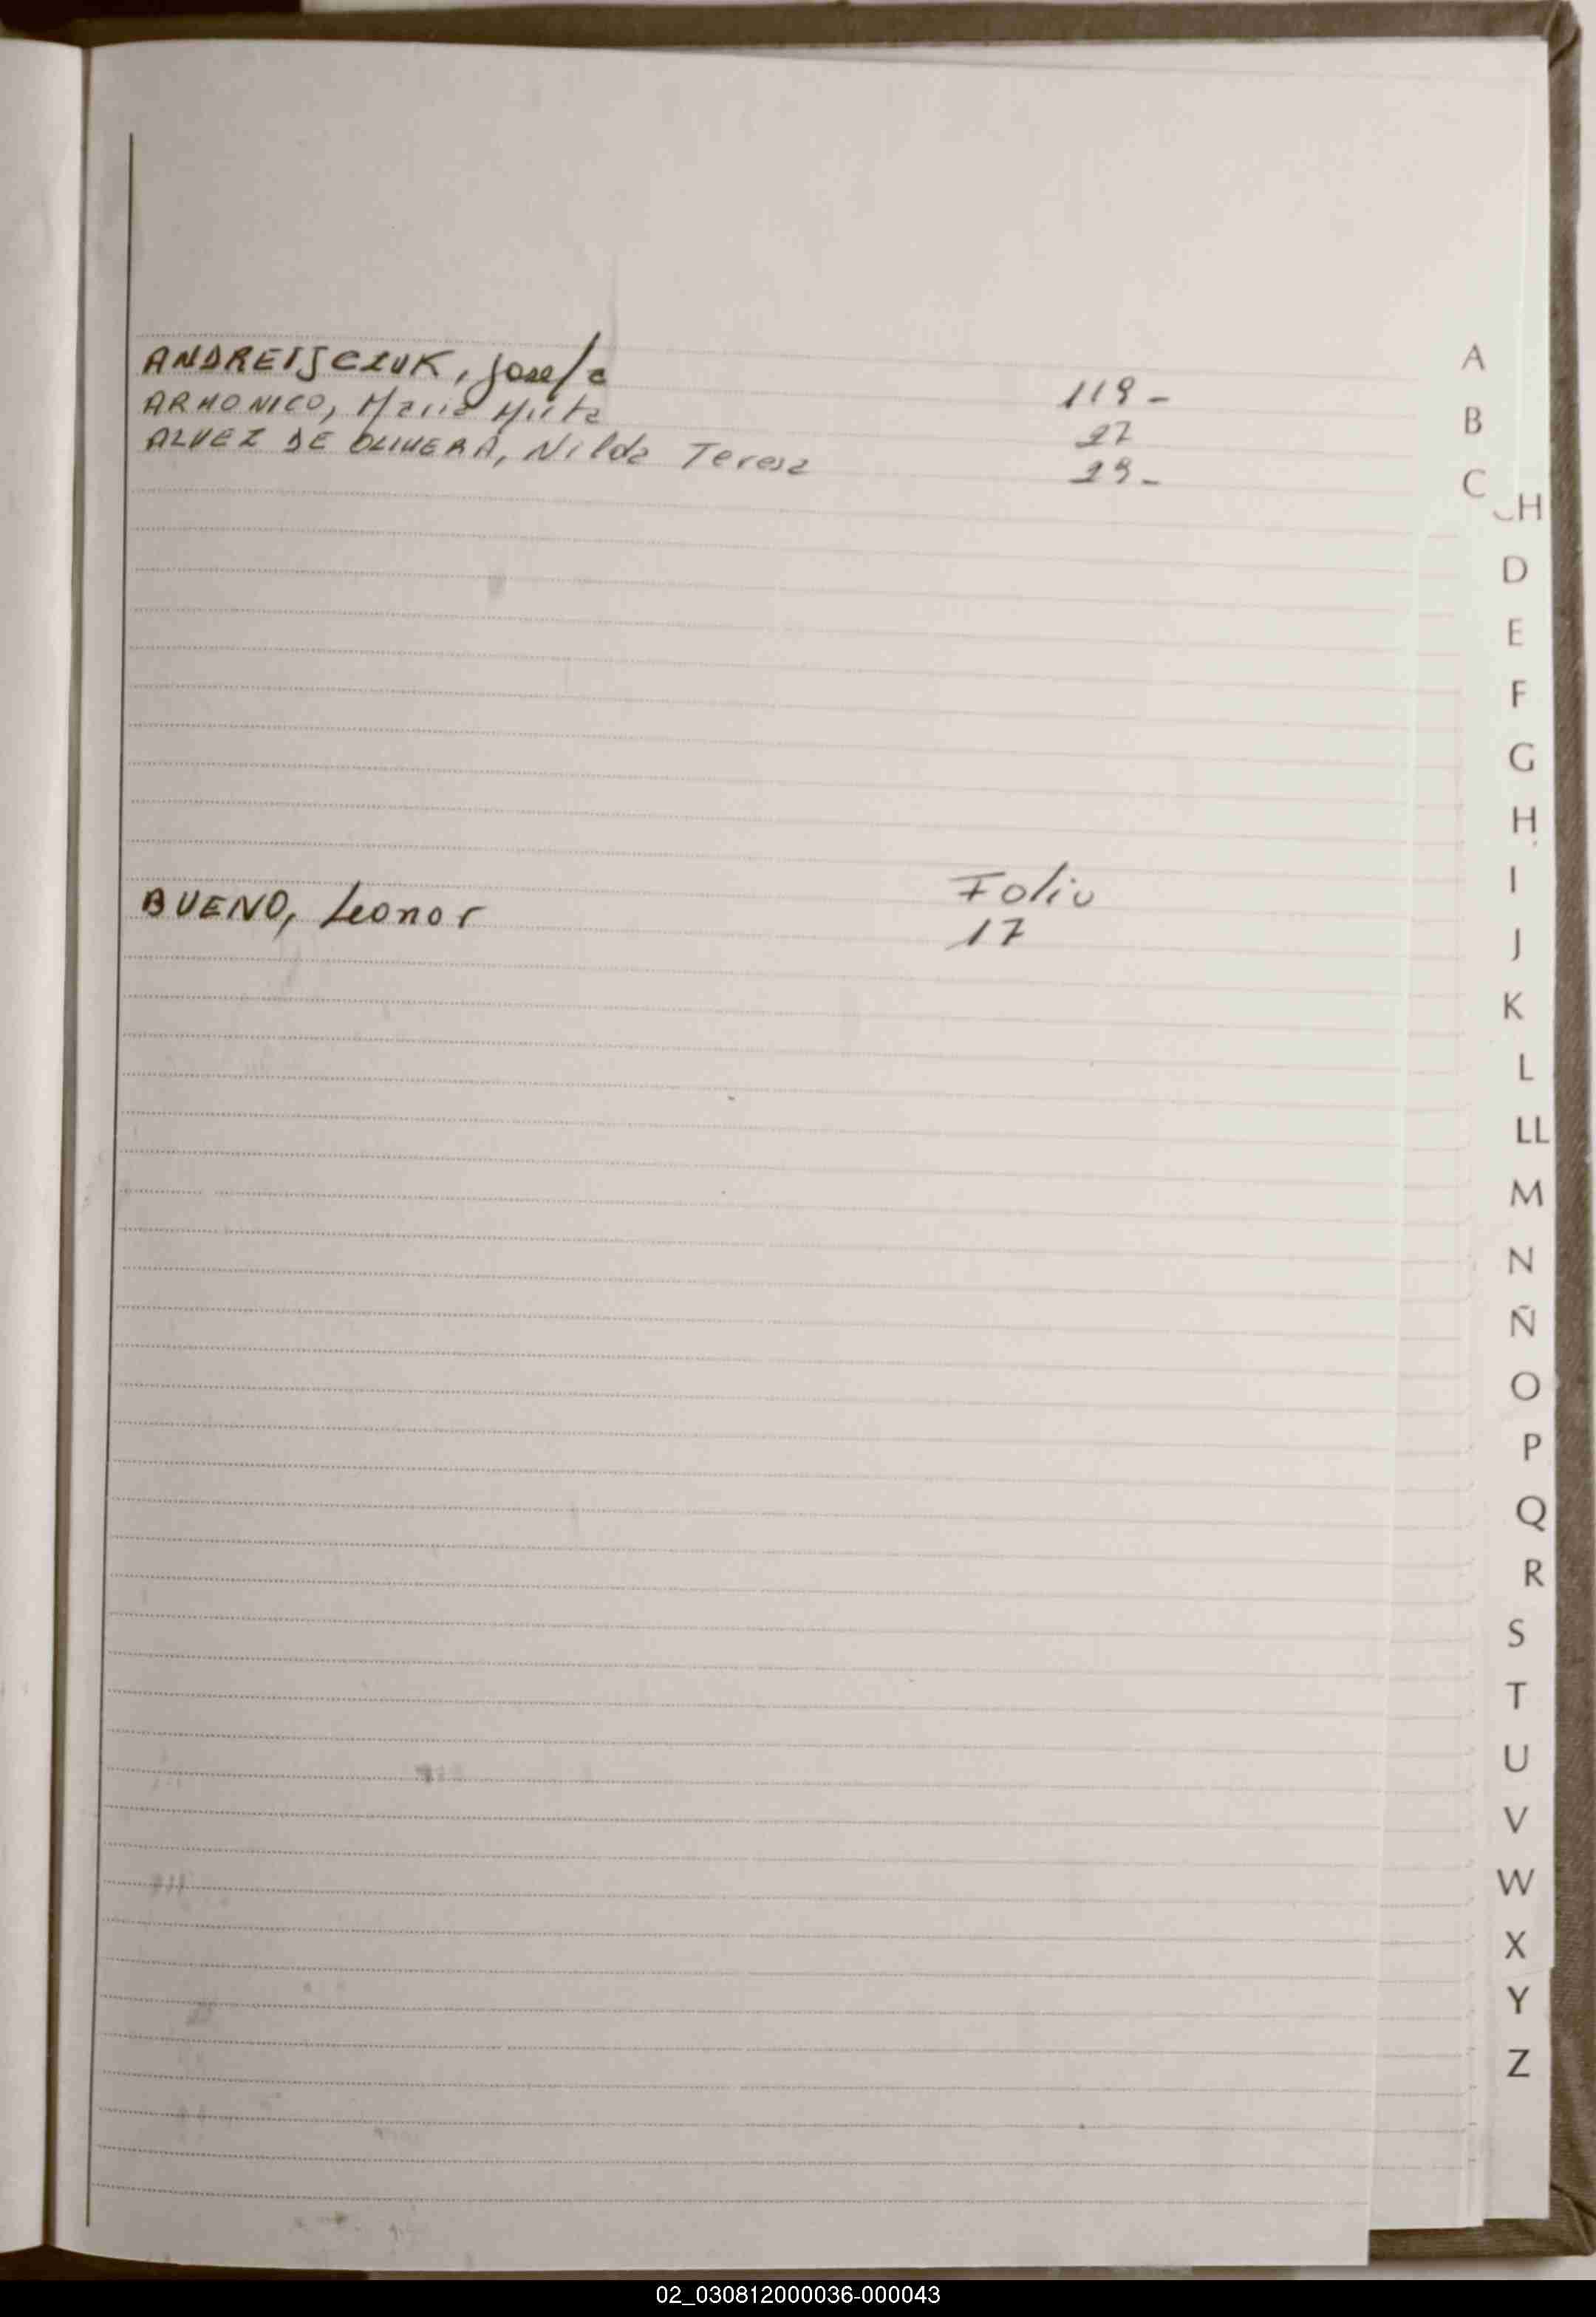 ANDREIJCZUK, Josefa 119-
ARMONICO, Maria Mirta 27
ALVEZ DE OLIVERA, Nilda Teresa 29-
BUENO, Leonor Folio
17
A
B
C
CH
D
E
F
G
H
I
J
K
L
LL
M
N
Ñ
O
P
Q
R
S
T
U
V
W
X
Y
Z
02_030812000036-000043